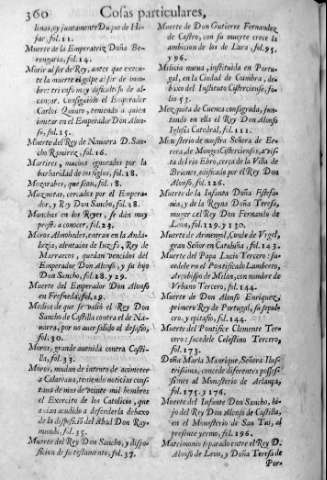 360 Cosas particulares,
linas, y juntamente Duque de Hijar, fol. 11.
Muerte de la Emperatriz Doña Berenguela, fol. 14.
Morir al ser de Rey, antes que executar la muerte
Carlos Quinto, teniendo a quien imitar en el Emperador Don Alonso, fol. 15.
Muerte del Rey de Navarra D. Sancho Ramirez, fol. 16.
Martires, muchos ignorados por la barbaridad de los siglos, fol. 18.
Mozarabes, que sean, fol. 18.
Mazmutas, cercados por el Emperador, y Rey Don Sancho, fol. 18.
Manchas en los Reyes, se dàn muy presto a conocer, fol. 23.
Moros Almohades, entran en la Andaluzia, alentados de Iuzeф, Rey de Marruecos, quedan vencidos del Emperador Don Alonso, y su hijo Don Sancho, fol. 28. y 29.
Muerte del Emperador Don Alonso en Fresneda, fol. 29.
Medios de que se valiò el Rey Don Sancho de Castilla contra el de Navarra, por no aver salido al desafio, fol. 30.
Moros, grande avenida contra Castilla, fol. 33.
Moros, mudan de intento de acometer a Calatrava, teniendo noticias constavan de mas de veinte mil hombres el Exercito de los Catolicos, que avian acudido a defenderla debaxo de la disposiciō del Abad Don Raymundo, fol. 35.
Muerte del Rey Don Sancho, y disposicion de su testamento, fol. 37.
Muerte de Don Gutierre Fernandez de Castro, con su muerte crece la ambicion de los de Lara, fol. 95. y 96.
Milicia nueva, instituida en Portugal, en la Ciudad de Coimbra, debaxo del Instituto Cisterciense, folio 53.
Mezquita de Cuenca consagrada, fundando en ella el Rey Don Alonso Iglesia Catedral, fol. 111.
Monasterio de nuestra Señora de Herrera, de Monges Cistercienses, a vista del rio Ebro, cerca de la Villa de Briones, edificado por el Rey Don Alonso, fol. 126.
Muerte de la Infanta Doña Estefania, y de la Reyna Doña Teresa, muger del Rey Don Fernando de Leon, fol. 129. y 130.
Muerte de Armengol, Conde de Vrgel, gran Señor en Cataluña, fol. 143.
Muerte del Papa Lucio Tercero: sucedele en el Pontificado Lamberto, Arçobispo de Milan, con nombre de Vrbano Tercero, fol. 144.
Muerte de Don Alonso Enriquez, primero Rey de Portugal, su sepulcro, y epitafio, fol. 144.
Muerte del Pontifice Clemente Tercero: sucedele Celestino Tercero, fol. 173.
Doña Maria Manrique, Señora Ilustrissima, concede diferentes possessiones al Monasterio de Arlança, fol. 175. y 176.
Muerte del Infante Don Sancho, hijo del Rey Don Alonso de Castilla, en el Monasterio de San Tui, al presente yermo, fol. 196.
Matrimonio separado entre el Rey D. Alonso de Leon, y Doña Teresa de
Por-